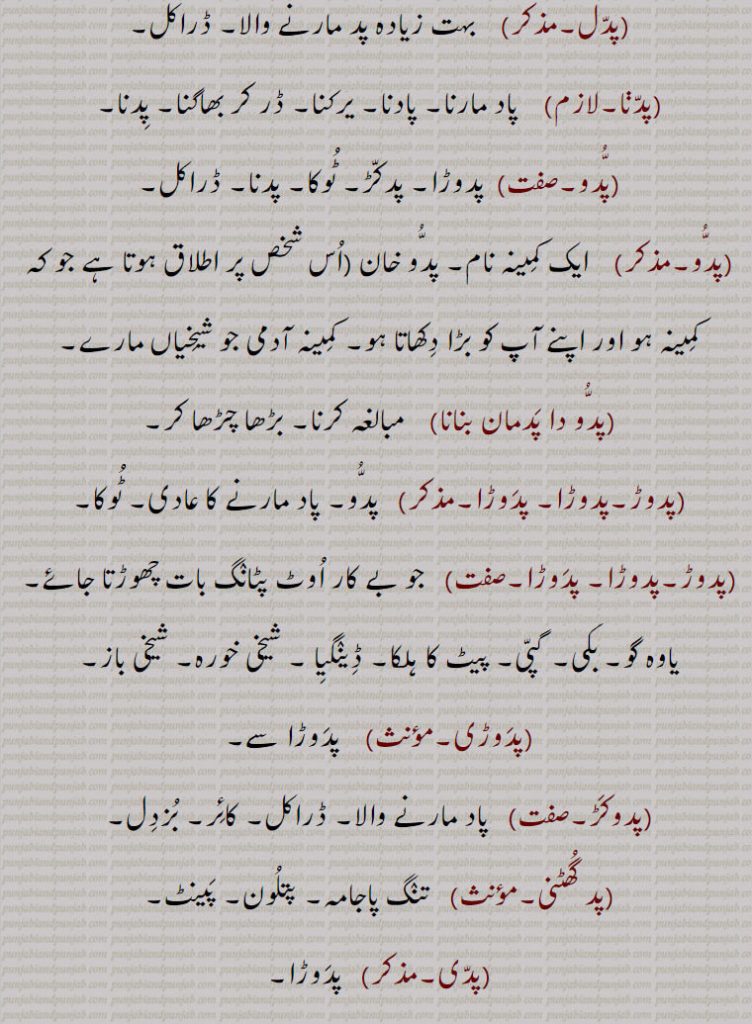 (پدّل۔مذکر) بہت زیادہ پد مارنے والا۔ ڈراکل۔
(پدّنْا۔لازم) پاد مارنا۔ پادنا۔ یرکنا۔ ڈر کر بھاگنا۔ پِدنا۔
(پُدّو۔صفت) پدوڑا۔ پدکّڑ۔ ٹُوکا۔ پدنا۔ ڈراکل۔
(پدُّو۔مذکر) ایک کمِینہ نام۔ پدُّو خان (اُس شخص پر اطلاق ہوتا ہے جو کہ
کمِینہ ہو اور اپنے آپ کو بڑا دِکھاتا ہو۔ کمِینہ آدمی جو شیخیاں مارے۔
(پدُّو دا پَدمان بنانا) مبالغہ کرنا۔ بڑھا چڑھا کر۔
(پدوڑ۔پدوڑا۔ پدَوڑا۔مذکر) پدُّو۔ پاد مارنے کا عادی۔ ٹُوکا۔
(پدوڑ۔پدوڑا۔ پدَوڑا۔صفت) جو بے کار اُوٹ پٹانگ بات چھوڑتا جائے۔
یاوہ گو۔ بکی۔ گپّی۔ پیٹ کا ہلکا۔ ڈِینگیا ۔ شیخی خورہ۔ شیخی باز۔
(پدَوڑی۔مؤنث) پدَوڑا سے۔
(پدوکَڑ۔صفت) پاد مارنے والا۔ ڈراکل۔ کائِر۔ بُزدِل۔
(پد گُھٹنی۔مؤنث) تنگ پاجامہ۔ پتلُون۔ پَینٹ۔
(پدّی۔مذکر) پدَوڑا۔